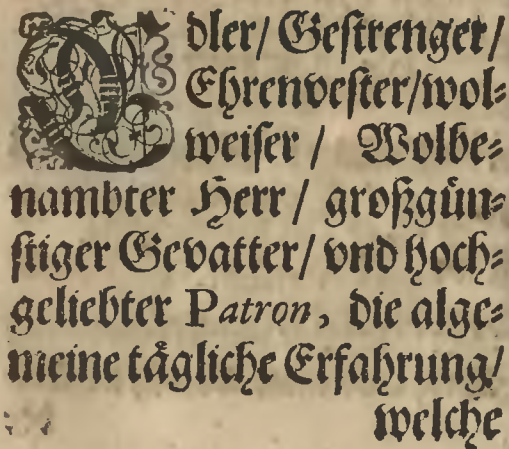 Edler/ Gestrenger/
Ehrenvester/wol⸗
weiser / Wolbe⸗
nambter Herr / großgün⸗
stiger Gevatter/ vnd hoch⸗
geliebter Patron, die alge⸗
meine tägliche Erfahrung/
welche